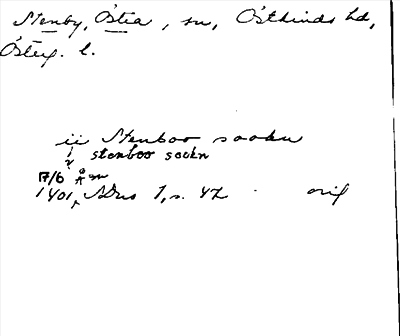 Stenby, Östra, sn, Östkinds hd,
Österg. l.
ii Stenboo sookn
i stenboo sookn
17/6 Å sn
1401, SDns 1, s. 42 orig